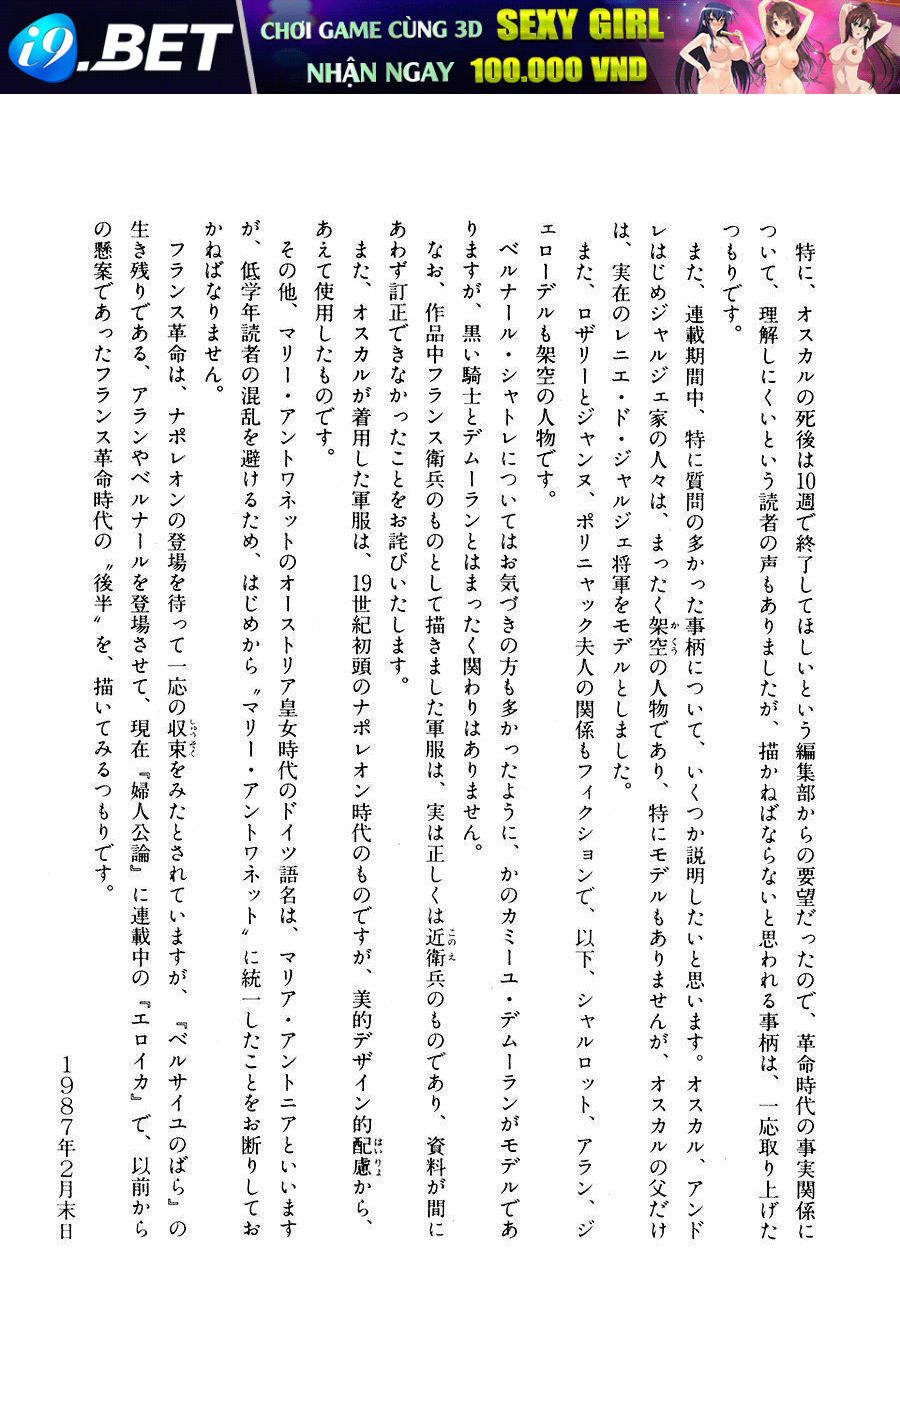 i9.BET
CHƠI GAME CÙNG 3D SEXY GIRL
NHẬN NGAY 100.000 VND
特に、オスカルの死後は10週で終了してほしいという編集部からの要望だったので、革命時代の事実関係に
ついて、理解しにくいという読者の声もありましたが、描かねばならないと思われる事柄は、一応取り上げた
つもりです。
また、連載期間中、特に質問の多かった事柄について、いくつか説明したいと思います。オスカル、アンド
レはじめジャルジェ家の人々は、まったく架空の人物であり、特にモデルもありませんが、オスカルの父だけ
は、実在のレニエ・ド・ジャルジェ将軍をモデルとしました。
また、ロザリーとジャンヌ、ポリニャック夫人の関係もフィクションで、以下、シャルロット、アラン、ジ
ェローデルも架空の人物です。
ベルナール・シャトレについてはお気づきの方も多かったように、かのカミーユ・デムーランがモデルであ
りますが、黒い騎士とデムーランとはまったく関わりはありません。
なお、作品中フランス衛兵のものとして描きました軍服は、実は正しくは近衛兵のものであり、資料が間に
あわず訂正できなかったことをお詫びいたします。
また、オスカルが着用した軍服は、19世紀初頭のナポレオン時代のものですが、美的デザイン的配慮から、
あえて使用したものです。
その他、マリー・アントワネットのオーストリア皇女時代のドイツ語名は、マリア・アントニアといいます
が、低学年読者の混乱を避けるため、はじめから〝マリー・アントワネット〟に統一したことをお断りしてお
かねばなりません。
フランス革命は、ナポレオンの登場を待って一応の収束をみたとされていますが、『ベルサイユのばら』の
生き残りである、アランやベルナールを登場させて、現在『婦人公論』に連載中の『エロイカ』で、以前から
の懸案であったフランス革命時代の〝後半〟を、描いてみるつもりです。
1987年2月末日